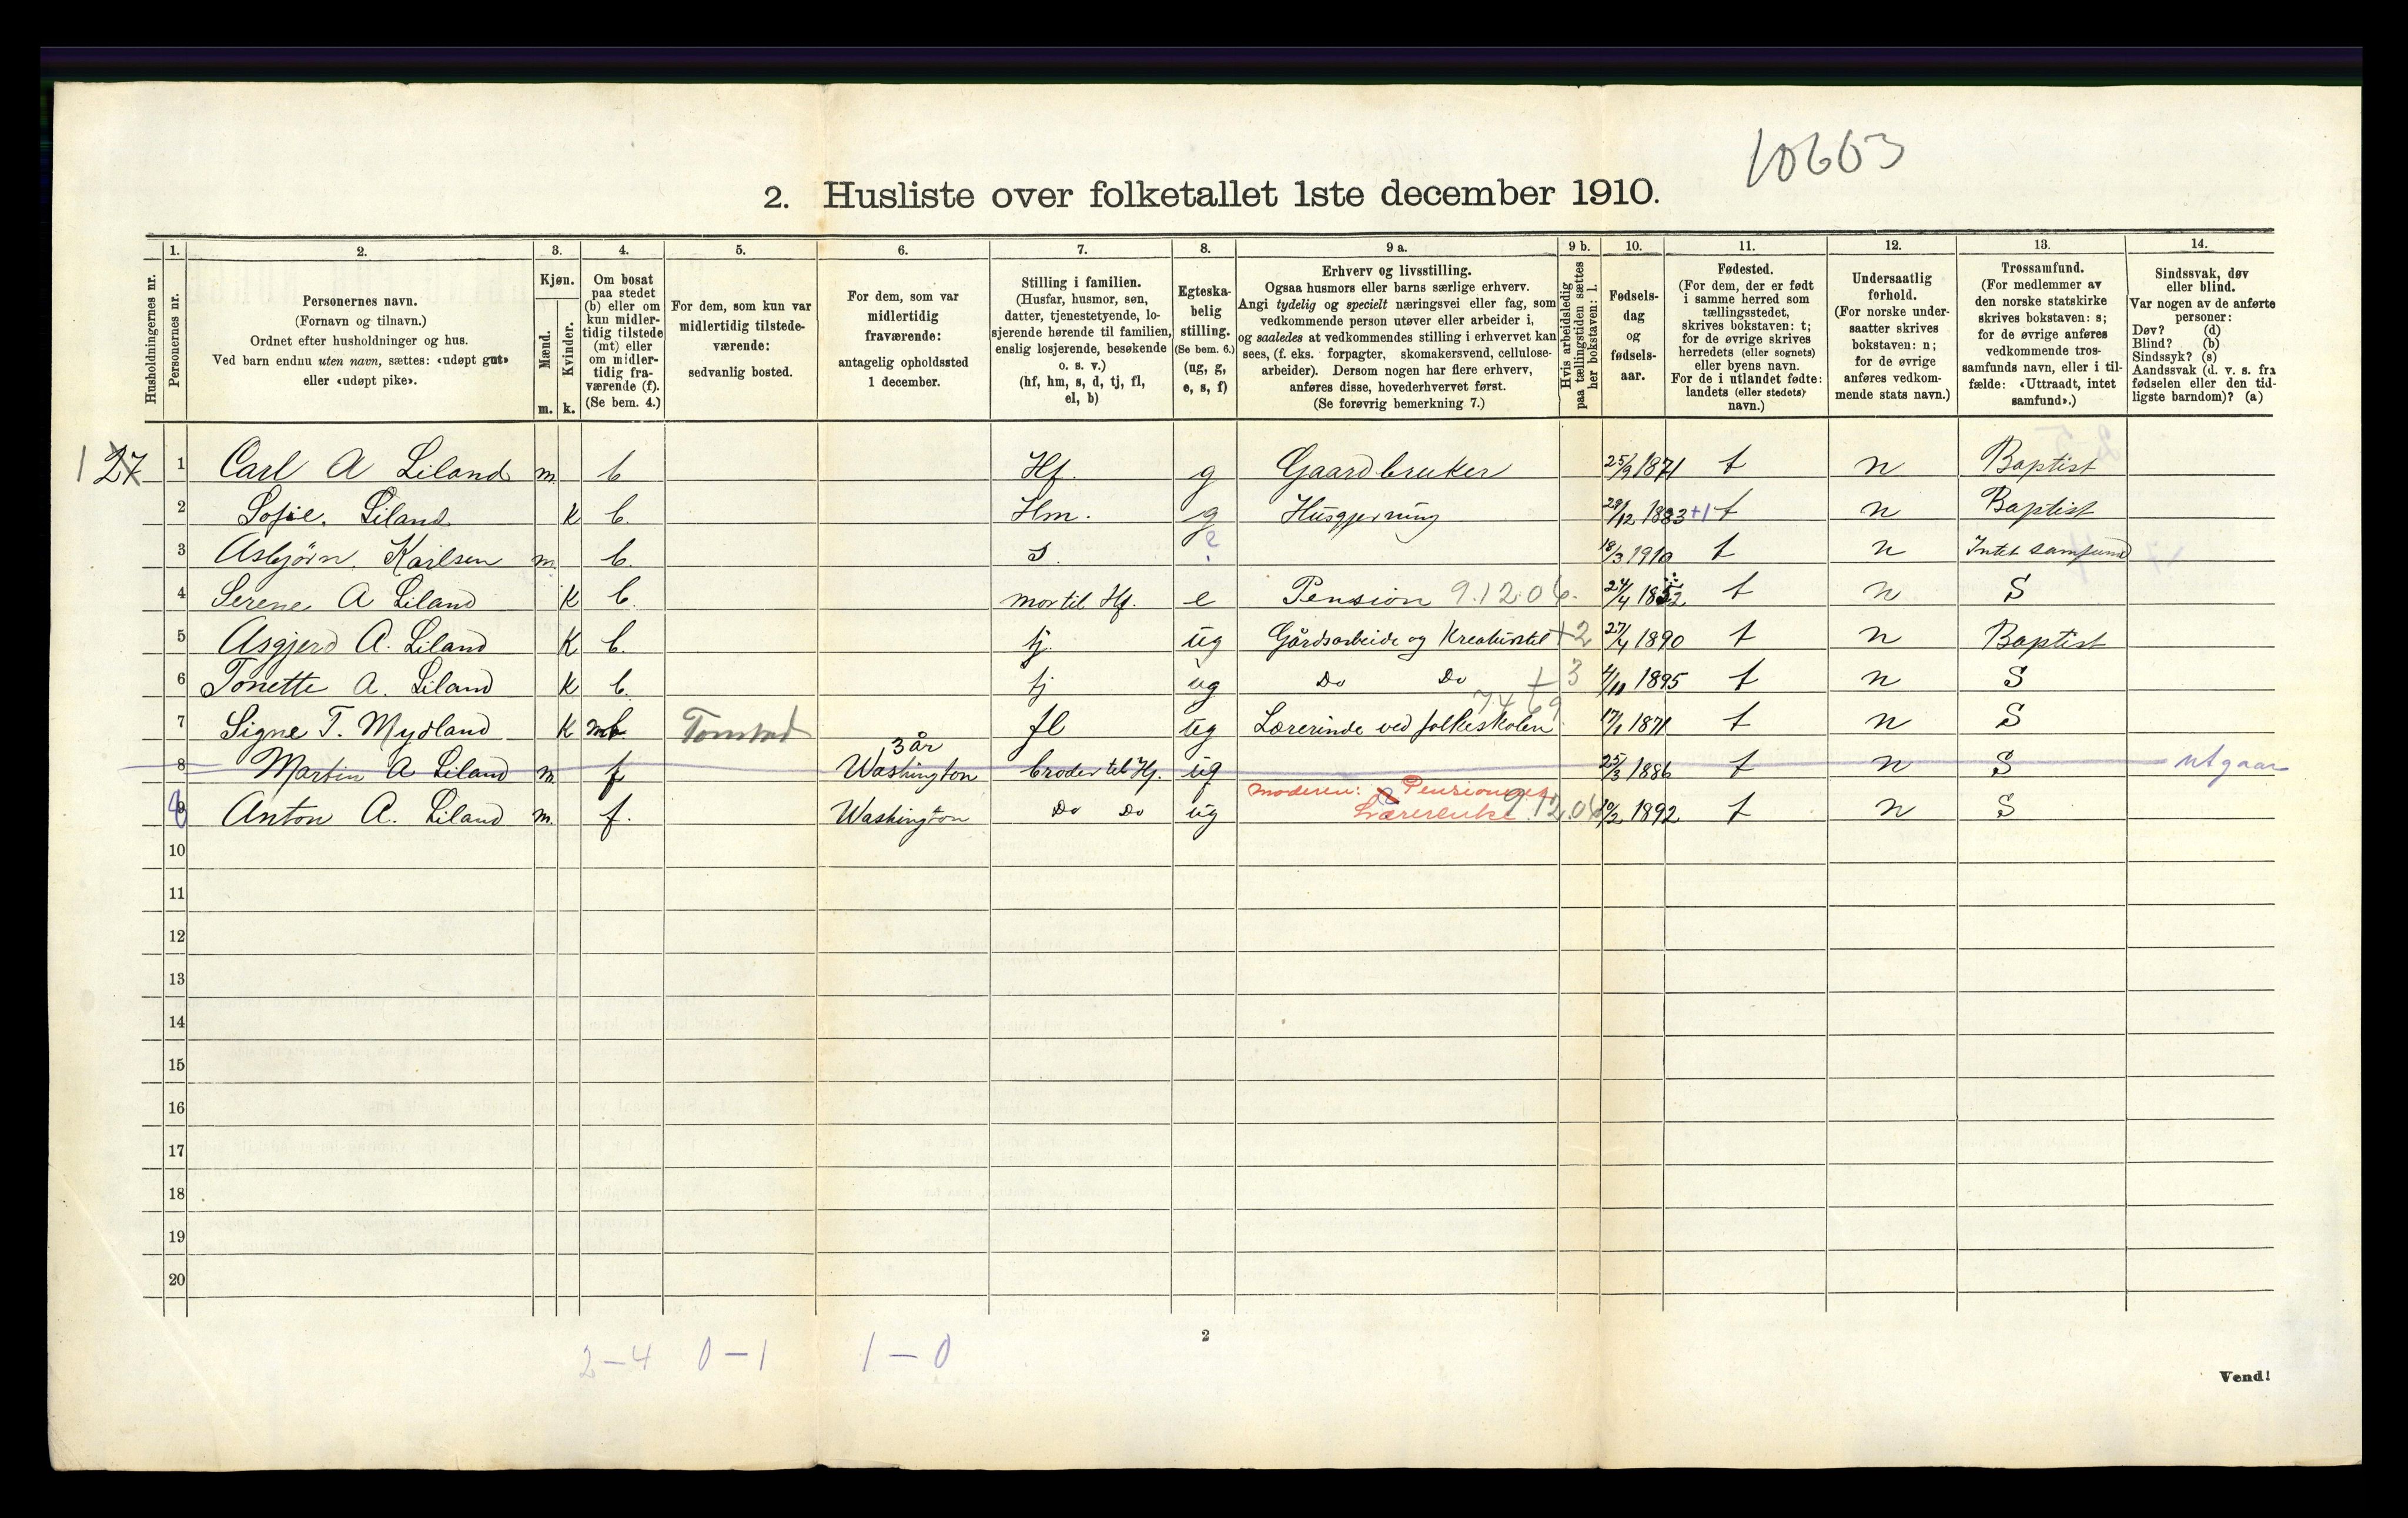 10663
2. Husliste over folketallet 1ste december 1910.
Husholdningernes nr.
1.
Personernes nr.
2.
Personernes navn.
(Fornavn og tilnavn.)
Ordnet efter husholdninger og hus.
Ved barn endnu uten navn, sættes: «udøpt gut»
eller «udøpt pike».
3.
Kjøn.
Mænd.
Kvinder.
m. k.
4.
Om bosat
paa stedet
(b) eller om
kun midler-
tidig tilstede
(mt) eller
om midler-
tidig fra-
værende (f).
(Se bem. 4.)
5.
For dem, som kun var
midlertidig tilstede-
værende:
sedvanlig bosted.
6.
For dem, som var
midlertidig
fraværende:
antagelig opholdssted
1 december.
7.
Stilling i familien.
(Husfar, husmor, søn,
datter, tjenestetyende, lo-
sjerende hørende til familien,
enslig losjerende, besøkende
o. s. v.)
(hf, hm, s, d, tj, fl,
el, b)
8.
Egteska-
belig
stilling.
(Se bem. 6.)
(ug, g,
e, s, f)
9 a.
Erhverv og livsstilling.
Ogsaa husmors eller barns særlige erhverv.
Angi tydelig og specielt næringsvei eller fag, som
vedkommende person utøver eller arbeider i,
og saaledes at vedkommendes stilling i erhvervet kan
sees, (f. eks. forpagter, skomakersvend, cellulose-
arbeider). Dersom nogen har flere erhverv,
anføres disse, hovederhvervet først.
(Se forøvrig bemerkning 7.)
9 b.
Hvis arbeidsledig
paa tællingstiden sættes
her bokstaven: l.
10.
Fødsels-
dag
og
fødsels-
aar.
11.
Fødested.
(For dem, der er født
i samme herred som
tællingsstedet,
skrives bokstaven: t;
for de øvrige skrives
herredets (eller sognets)
eller byens navn.
For de i utlandet fødte:
landets (eller stedets)
navn.)
12.
Undersaatlig
forhold.
(For norske under-
saatter skrives
bokstaven: n;
for de øvrige
anføres vedkom-
mende stats navn.)
13.
Trossamfund.
(For medlemmer av
den norske statskirke
skrives bokstaven: s;
for de øvrige anføres
vedkommende tros-
samfunds navn, eller i til-
fælde: «Uttraadt, intet
samfund».)
14.
Sindssvak, døv
eller blind.
Var nogen av de anførte
personer:
Døv? (d)
Blind? (b)
Sindssyk? (s)
Aandssvak (d. v. s. fra
fødselen eller den tid-
ligste barndom)? (a)
1 27 1 Carl A Liland m. b Hf. g Gaardbruker 25/9 1871 t n Baptist
2 Sofie. Liland K b. Hm. g Husgjerning 29/12 1883 +1 t n Baptist
3 Asbjörn. Karlsen m. b. s. e 18/3 1910 t n Intet samfund
4 Serene A Liland K b. mor til Hf. e Pension 9.12.06. 24/4 1852 t n S
5 Asgjerd A. Liland K b. tj. ug Gårdsarbeide og Kreaturstel +2 27/4 1890 t n Baptist
6 Tonette A. Liland K b. tj ug Do Do +3 4/10 1895 t n S
7 Signe T. Mydland K mt Tonstad fl ug Lærerinde ved folkeskolen 7.4.69. 17/1 1871 t n S
8 Martin A Liland m. f 3 år Washington broder til Hf. ug 25/3 1886 t n S utgaar
Moderen: Pensionær
9 8 Anton A. Liland m. f. Washington Do Do ug Lærerenke 9.12.06 10/2 1892 t n S
10
11
12
13
14
15
16
17
18
19
20
2
2-4 0-1 1-0
Vend!